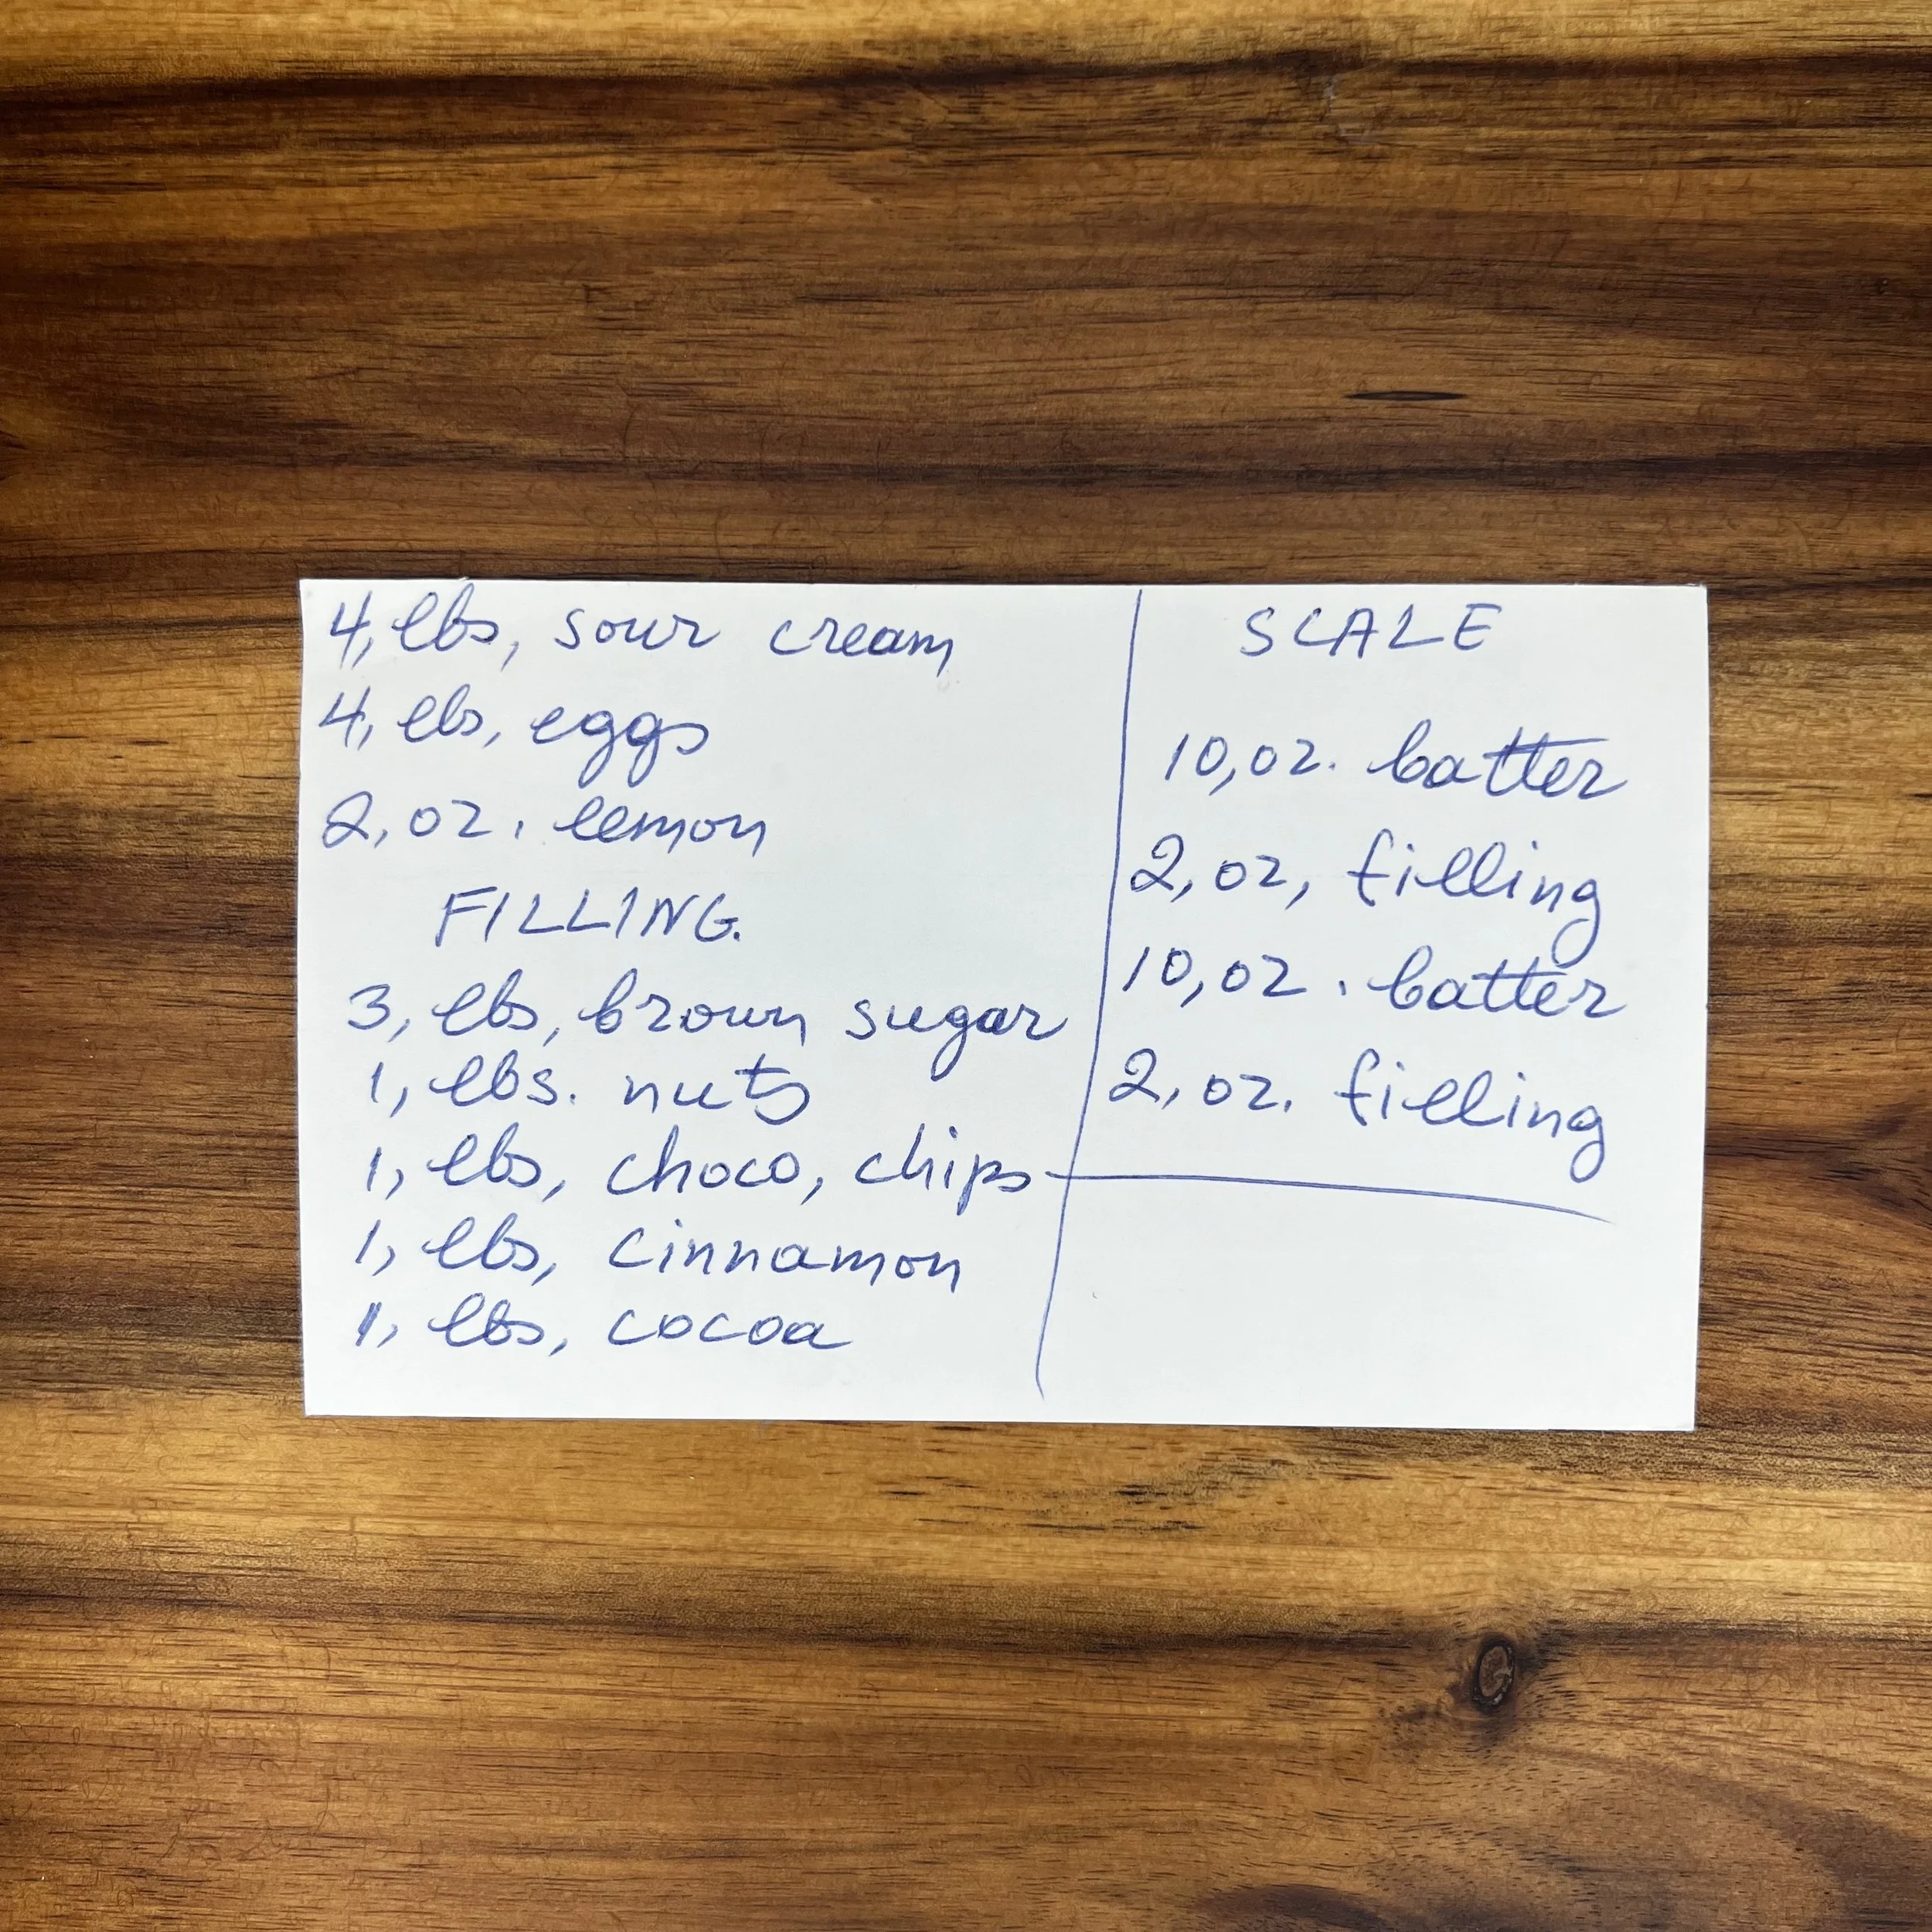 4, lbs, sour cream
4, lbs, eggs
2, oz. lemon
FILLING.
3, lbs, brown sugar
1, lbs. nuts
1, lbs, choco, chips
1, lbs, cinnamon
1, lbs, cocoa
SCALE
10, oz. batter
2, oz, filling
10, oz. batter
2, oz. filling